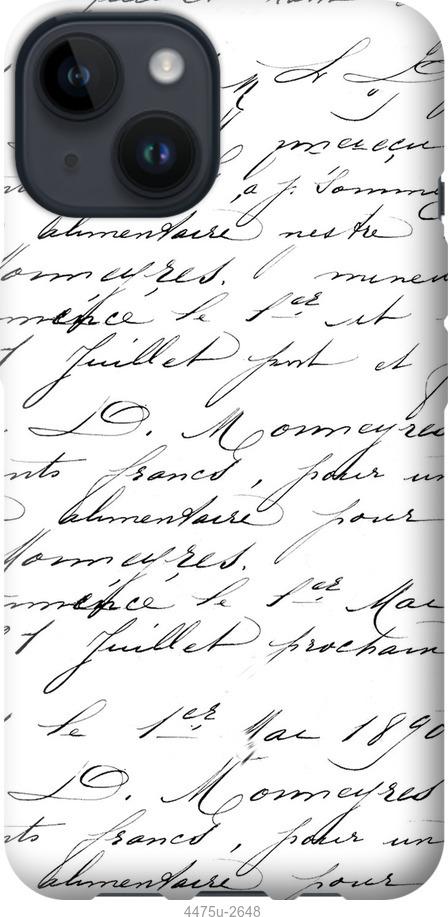 , a p. Somme
alimentaire nestre
Monneyres.
mence le 1er et
1 Juillet port et
D. Monneyres
nts francs, pour un
alimentaire pour
Monneyres.
mence le 1er Mai
1 Juillet prochain
le 1er Mai 1890
D. Monneyres
nts francs, pour un
alimentaire pour
4475u-2648